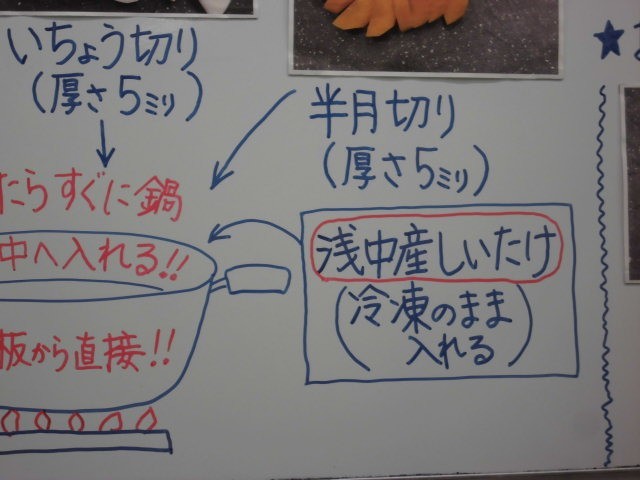 いちょう切り
(厚さ5ミリ)
半月切り
(厚さ5ミリ)
たらすぐに鍋
中へ入れる!!
板から直接!!
浅中産しいたけ
(冷凍のまま
入れる)
★